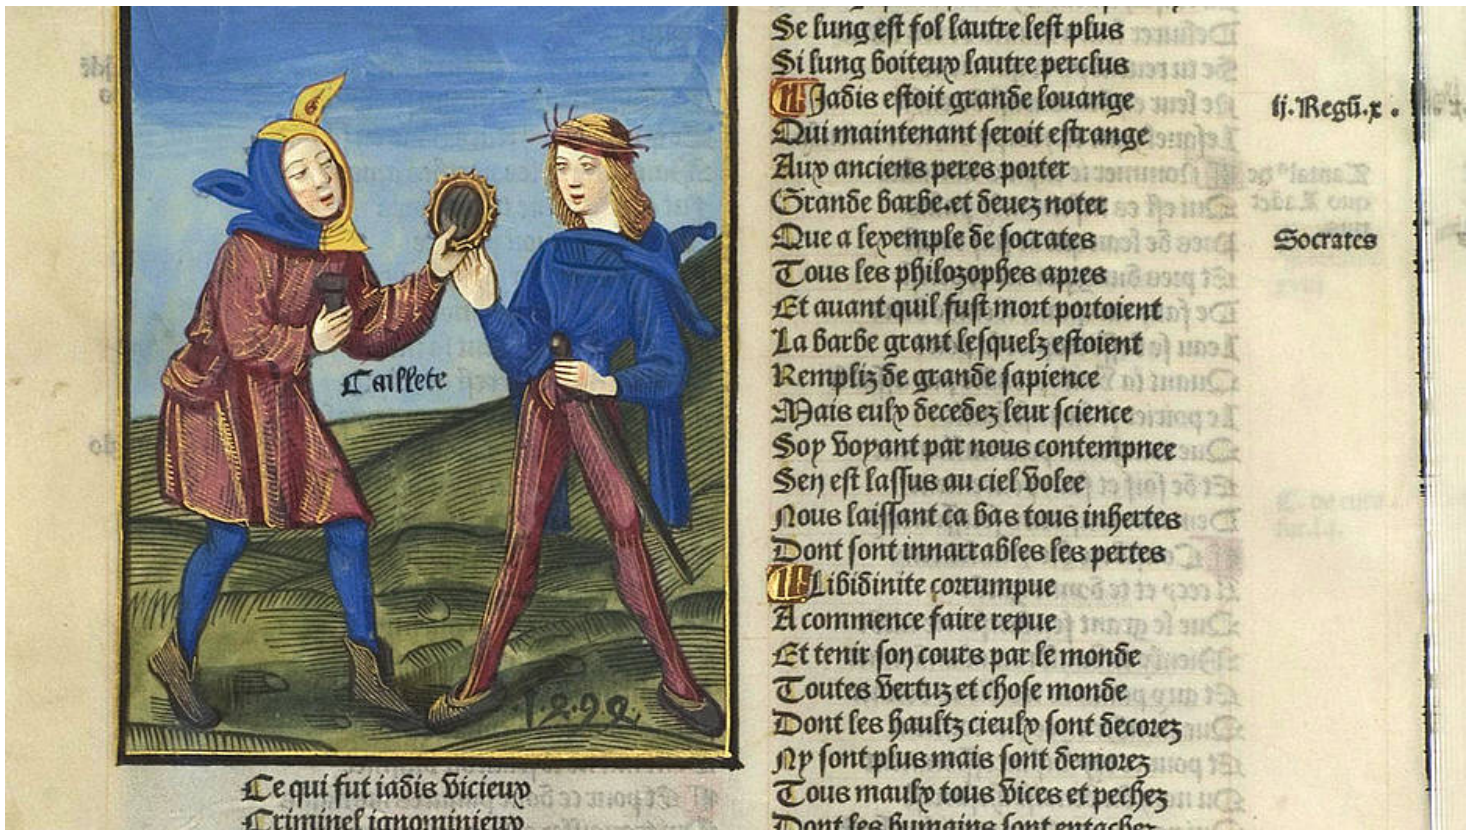 Caillete
1.4.9.4.
Ce qui fut iadis vicieux
Criminel ignominieux
Se lung est fol lautre lest plus
Si lung boiteux lautre perclus
Jadis estoit grande louange
Qui maintenant seroit estrange
Aux anciens peres porter
Grande barbe.et devez noter
Que a lexemple de socrates
Tous les philozophes apres
Et avant quil fust mort portoient
La barbe grant lesquelz estoient
Rempliz de grande sapience
Mais eulx decedez leur science
Soy voyant par nous contempnee
Sen est lassus au ciel volee
Nous laissant ca bas tous inhertes
Dont sont innarrables les pertes
Libidinite corrumpue
A commence faire repue
Et tenir son cours par le monde
Toutes vertuz et chose monde
Dont les haultz cieulx sont decorez
Ny sont plus mais sont demorez
Tous maulx tous vices et pechez
Dont les humains sont entachez
ij. Regū.x.
Socrates